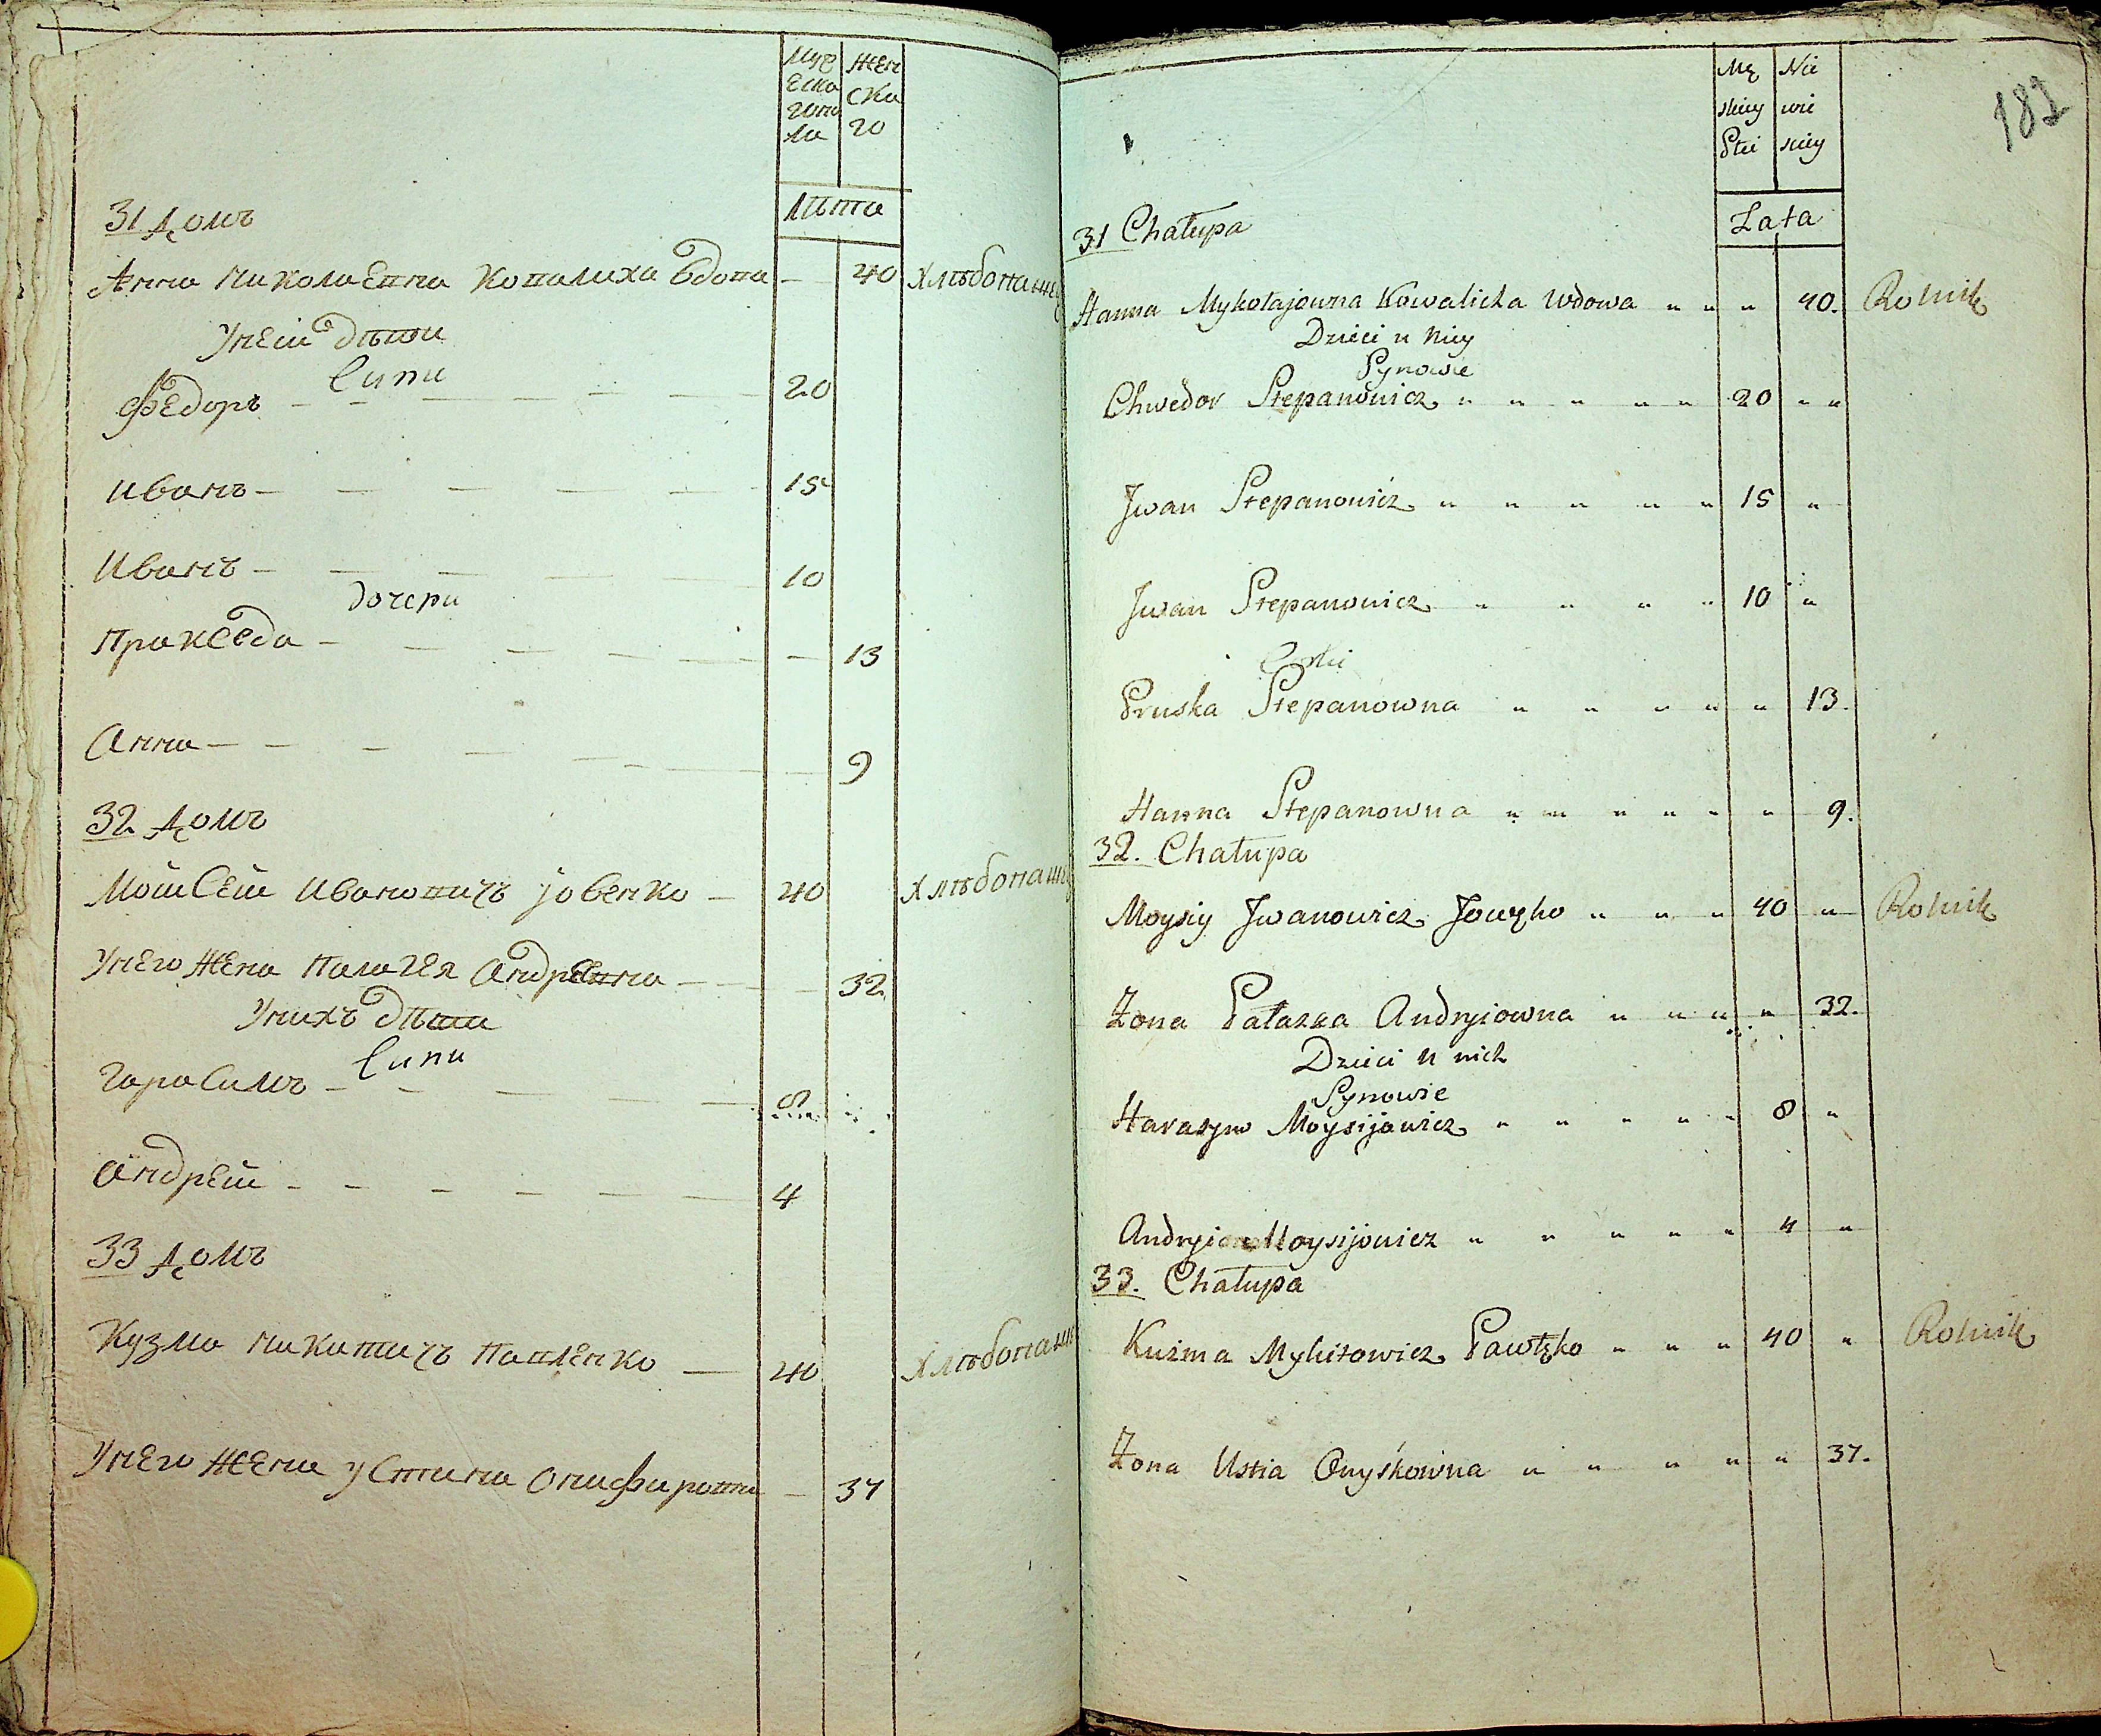 Муж Жен
еска ска
гопо го
ла
Лѣта
31 домъ
Анна Николаевна Ковалиха вдова — 40 Хлѣбопаше
Унеи дѣти
Сини
Федоръ — 20
Иванъ — 15
Иванъ — 10
дочери
Пракседа — 13
Анна — 9
32 домъ
Мойсей Ивановичъ Јовенко — 40 Хлѣбопаш
Унего жена Палагея Андревна — 32
Унихъ дѣти
Сини
Гарасимъ — 8
Андрей — 4
33 домъ
Кузма Никитичъ Павленко — 40 Хлѣбопаш
Унего жена Устина Онифировна — 37
Mę Nie
skiey wie
Płci sciey
182
Lata
31 Chałupa
Hanna Mykołajowna Kowalicha Wdowa " " " 40. Rolnik
Dzieci u niey
Synowie
Chwedor Stepanowicz " " " " " 20 " "
Jwan Stepanowicz " " " " " 15 "
Jwan Stepanowicz " " " " 10 "
Corki
Pruska Stepanowna " " " " " 13.
Hanna Stepanowna " " " " " " 9.
32. Chałupa
Moysiy Jwanowicz Jowęko " " " 40 " Rolnik
Żona Pałazka Andryiowna " " " " 32.
Dzieci u nich
Synowie
Harasym Moysijowicz " " " " " 8 "
Andryi Moysijowicz " " " " " 4 "
33. Chałupa
Kuźma Mykitowicz Pawlęko " " " 40 " Rolnik
Żona Ustia Onyśkowna " " " " " 37.